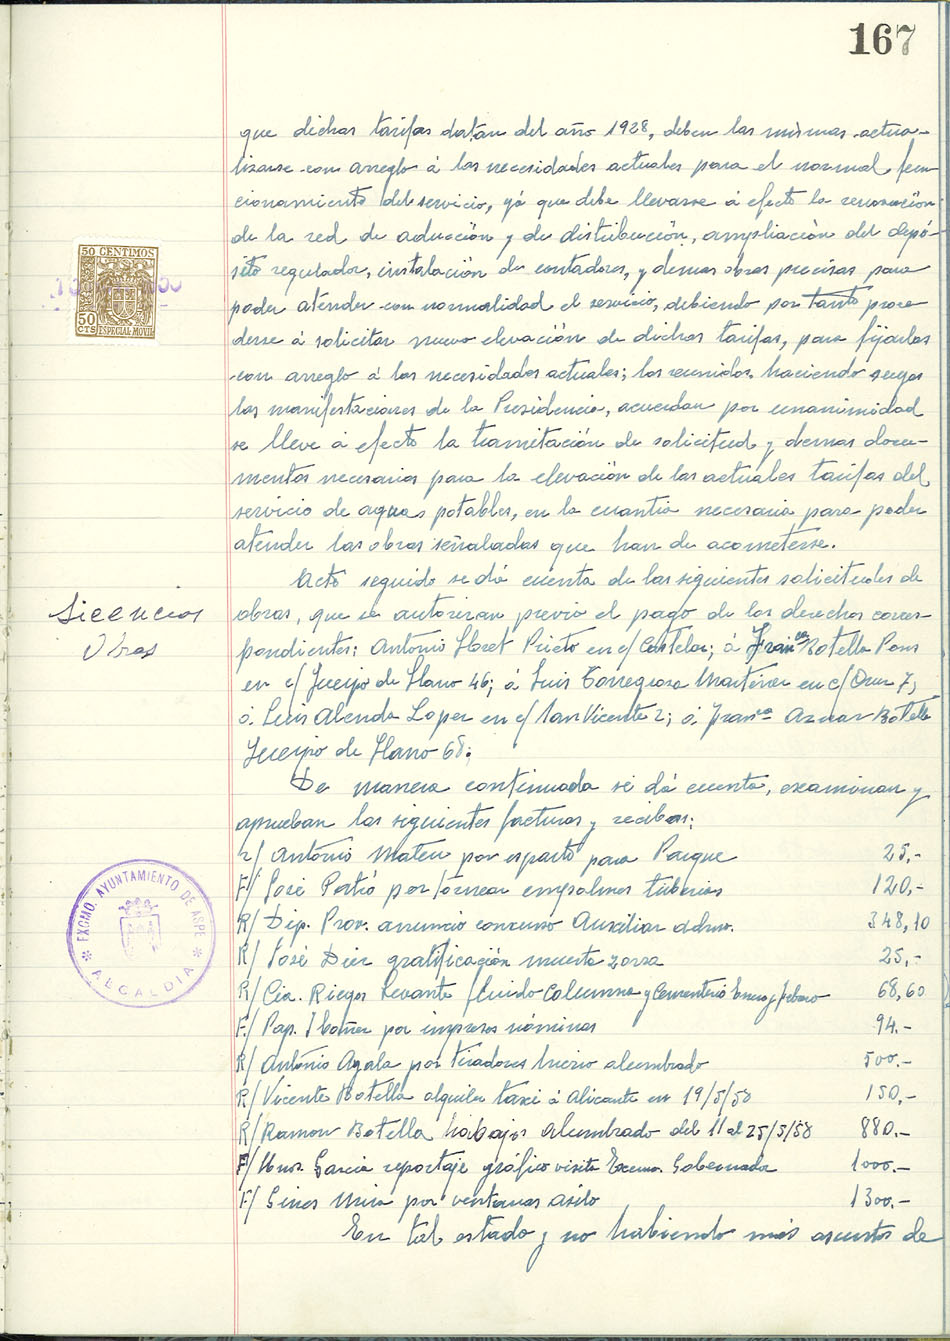 167
que dichas tarifas datan del año 1928, deben las mismas actua-
lizarse con arreglo á las necesidades actuales para el normal fun
cionamiento del servicio, yá que debe llevarse á efecto la renovación
de la red de aducción y de distribución, ampliación del depó-
sito regulador, instalación de contadores, y demas obras precisas para
poder atender con normalidad el servicio, debiendo por tanto proce
derse á solicitar nueva elevación de dichas tarifas, para fijarlas
con arreglo á las necesidades actuales; los reunidos, haciendo suyas
las manifestaciones de la Presidencia, acuerdan por unanimidad
se lleve á efecto la tramitación de solicitud y demas docu-
mentos necesarios para la elevación de las actuales tarifas del
servicio de aguas potables, en la cuantia necesaria para poder
atender las obras señaladas que han de acometerse.
Acto seguido se dá cuenta de las siguientes solicitudes de
obras, que se autorizan previo el pago de los derechos corres-
pondientes: Antonio Lloret Prieto en c/ Castelar; á Franco Botella Pons
en c/ Queipo de Llano 46; á Luis Torregrosa Martinez en c/ Cruz 7;
á Luis Abenda Lopez en c/ San Vicente 2; á Franca Aznar Botella
Queipo de Llano 68;
De manera continuada se dá cuenta, examinan y
aprueban las siguientes facturas y recibos:
r/ Antonio Mateu por esparto para Parque 25,-
F/ José Pertió por tornear empalmes tuberias 120.-
R/ Dip. Prov. anuncio concurso Auxiliar admvo. 348,10
R/ José Diez gratificación muerte zorra 25,-
R/ Cia. Riegos Levante fluido Columna y Cementerio Enero y febrero 68,60
F/ Pap. Ibañez por impresos nóminas 94.-
R/ Antonio Ayala por tiradores hierro alumbrado 500.-
R/ Vicente Botella alquiler taxi á Alicante en 19/5/58 150.-
R/ Ramon Botella trabajos alumbrado del 11 al 25/5/58 880.-
F/ Hnos. Garcia reportaje gráfico visita Excmo. Gobernador 1000.-
F/ Gines Mira por ventanas asilo 1300.-
En tal estado y no habiendo más asuntos de
50 CENTIMOS
50
CTS
ESPECIAL MOVIL
Licencias
Obras
EXCMO. AYUNTAMIENTO DE ASPE
* ALCALDIA *